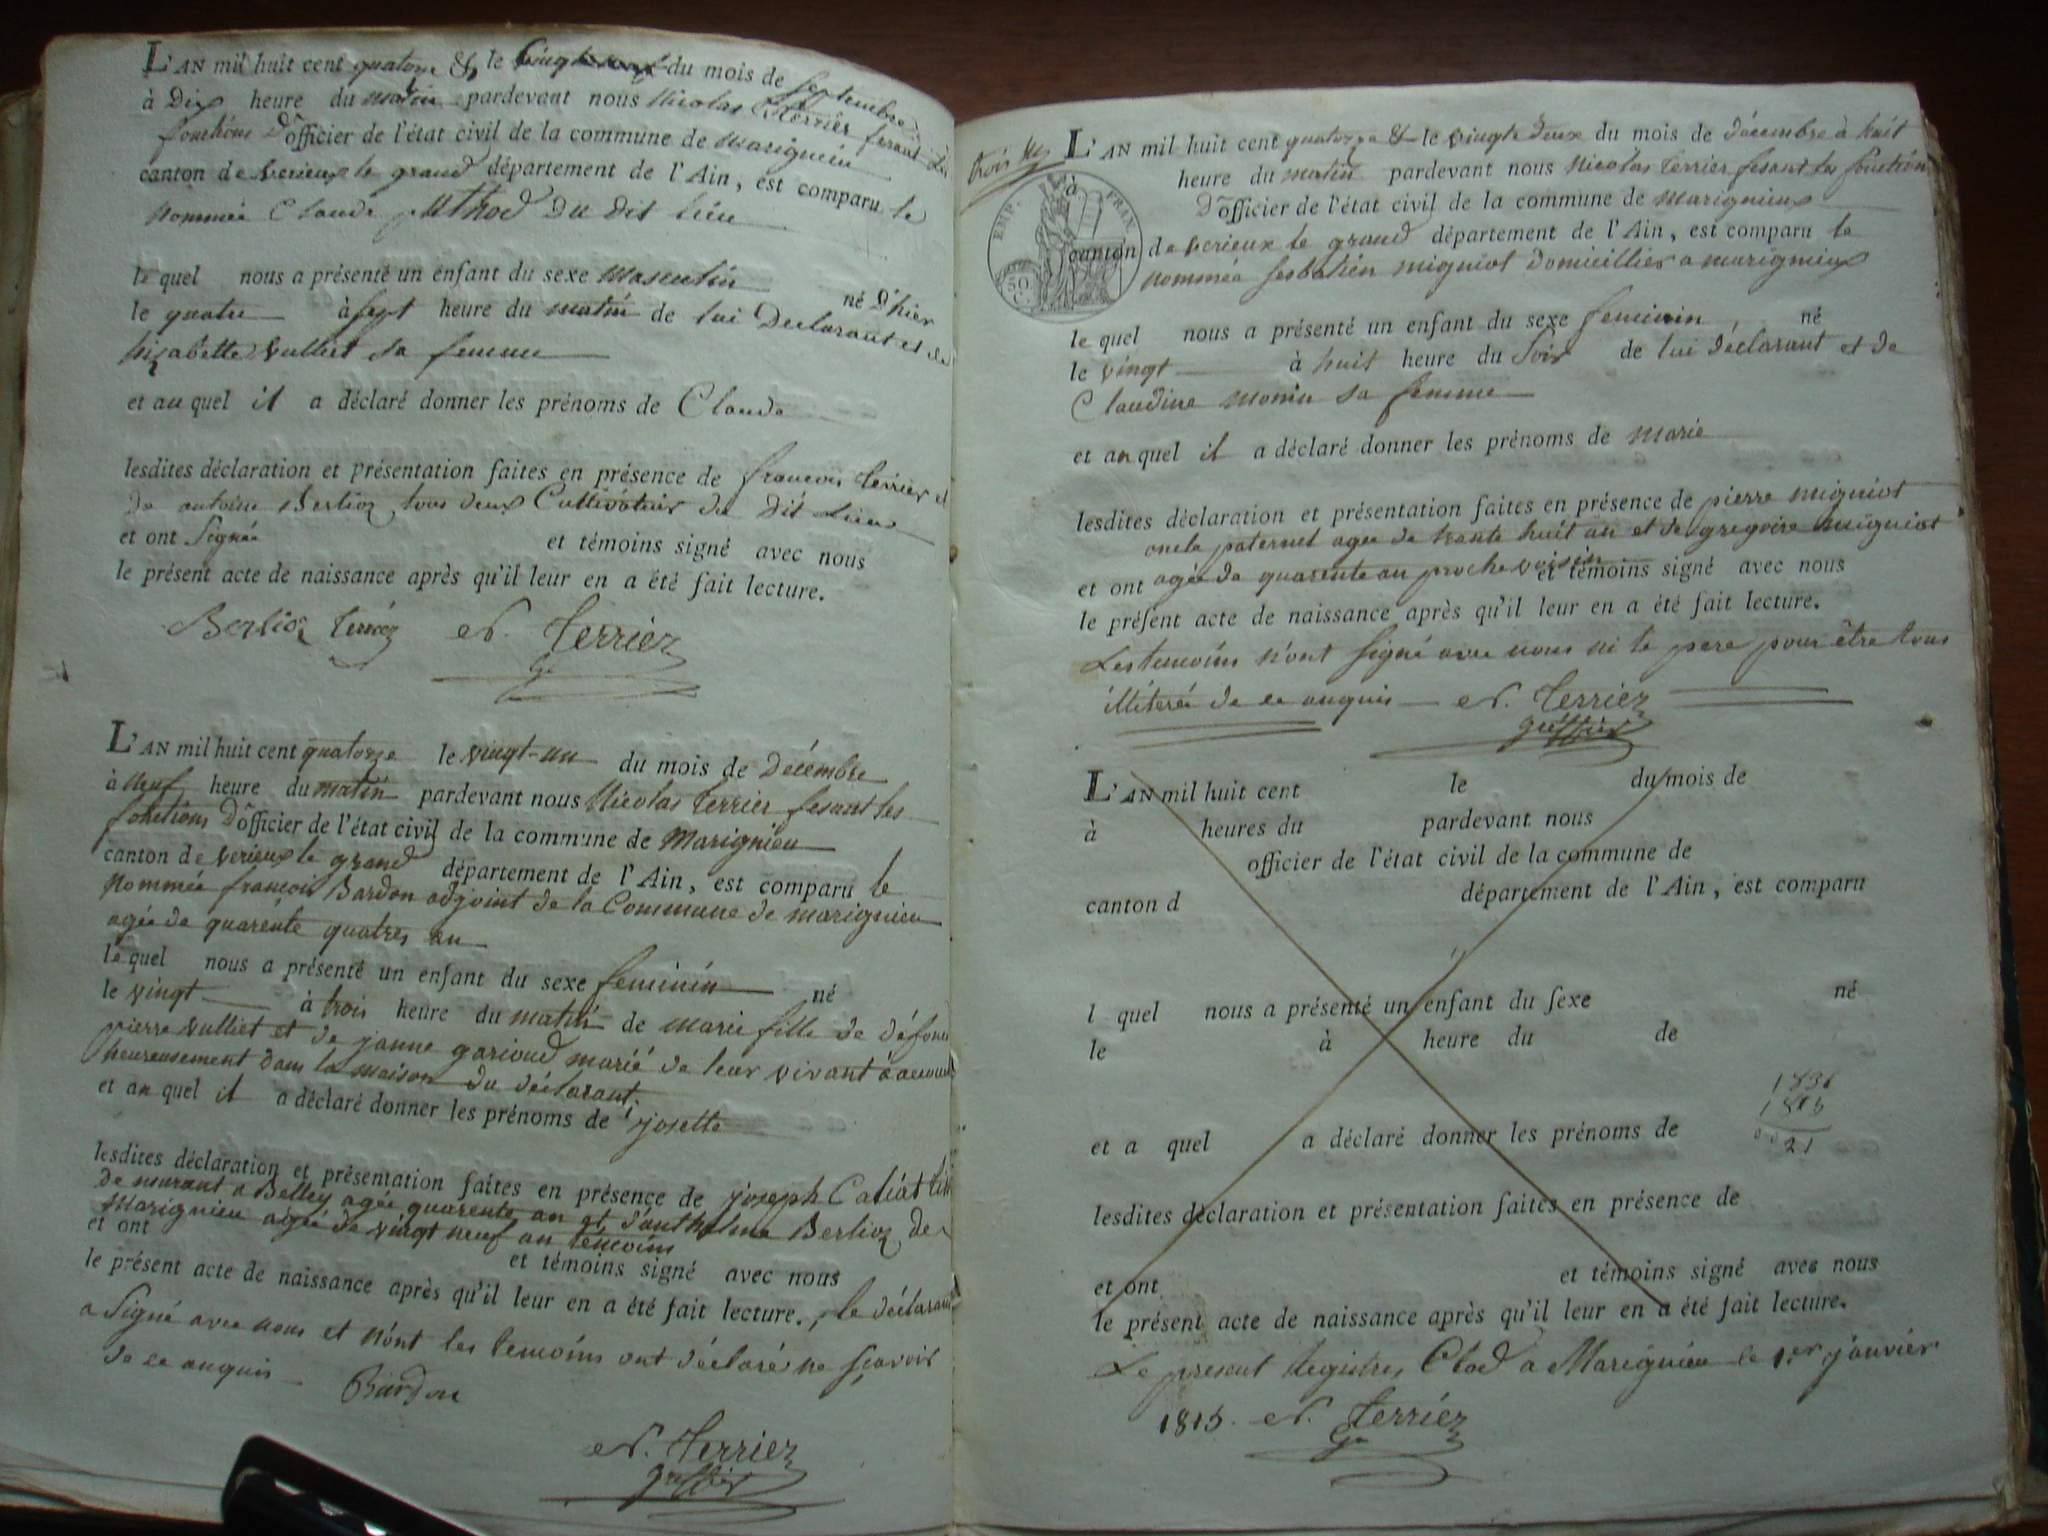 L'AN mil huit cent quatorze & le du mois de Septembre
à Dix heure du matin pardevant nous Nicolas Terrier fesant les
fonctions D'officier de l'état civil de la commune de Marignieu
canton de verieux le grand département de l'Ain, est comparu le
nommée Claude du dit lieu
le quel nous a présenté un enfant du sexe Masculin né D'hier
le quatre à sept heure du matin de lui Déclarant et de
Lizabette Vulliet sa femme
et au quel il a déclaré donner les prénoms de Claude
lesdites déclaration et présentation faites en présence de francois Terrier et
de antoine Berlioz tous deux Cultivateur du dit Lieu
et ont Signée et témoins signé avec nous
le présent acte de naissance après qu'il leur en a été fait lecture.
Berlioz N. Terrier
L'AN mil huit cent quatorze le vingt-un du mois de Décémbre
à Neuf heure du matin pardevant nous Nicolas Terrier fesant les
fonctions D'officier de l'état civil de la commune de Marignieu
canton de verieux le grand département de l'Ain, est comparu le
nommée francois Bardon adjoint de la Commune de marignieu
agée de quarente quatres an
le quel nous a présenté un enfant du sexe feminin né
le vingt à trois heure du matin de marie fille de défont
pierre vulliet et de janne gorioud marié de leur vivant
heureusement dans la maison du déclarant.
et au quel il a déclaré donner les prénoms de josette
lesdites déclaration et présentation faites en présence de joseph Caliat
de murant a Belley agée quarente an et d'anthelme Berlioz de
Marignieu agée de vingt neuf an témoins
et ont et témoins signé avec nous
le présent acte de naissance après qu'il leur en a été fait lecture. le déclarant
a Signé avec nous et n'ont les temoins ont déclaré ne sçavoir
de ce anquis
Bardon
N. Terrier
greffier
trois
L'AN mil huit cent quatorze & le vingte deux du mois de décembre à huit
heure du matin pardevant nous Nicolas Terrier fesant les fonction
D'officier de l'état civil de la commune de marignieux
canton de verieux le grand département de l'Ain, est comparu le
nommée Sesbatien migniot domicillier a marignieux
EMP. FRAN.
50 C.
le quel nous a présenté un enfant du sexe feminin né
le vingt à huit heure du Soir de lui déclarant et de
Claudine monin sa femme
et au quel il a déclaré donner les prénoms de marie
lesdites déclaration et présentation faites en présence de pierre migniot
oncle paternel agée de trante huit an et de gregoire migniot
agée de quarente an proche voisin
et ont et témoins signé avec nous
le présent acte de naissance après qu'il leur en a été fait lecture.
Les temoins n'ont signé avec nous ni le pere pour être tous
illiteré de ce anquis N. Terrier
greffier
L'AN mil huit cent le du mois de
à heures du pardevant nous
officier de l'état civil de la commune de
canton d département de l'Ain, est comparu
l quel nous a présenté un enfant du sexe né
le à heure du de
1836
1815
21
et a quel a déclaré donner les prénoms de
lesdites déclaration et présentation faites en présence de
et ont et témoins signé avec nous
le présent acte de naissance après qu'il leur en a été fait lecture.
Le present Registre, Clod a Marignieu le 1er janvier
1815. N. Terrier